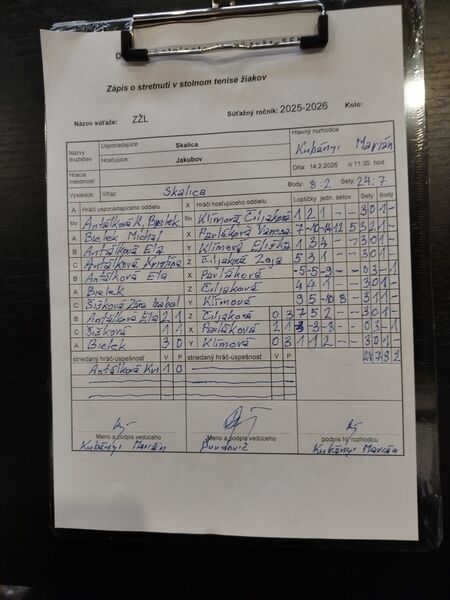 Zápis o stretnutí v stolnom tenise žiakov
Názov súťaže: ZŽL Súťažný ročník: 2025-2026 Kolo:
Hlavný rozhodca
Názvy družstiev Usporiadajúce: Skalica Kubányi Marián
Hosťujúce: Jakubov
Hracia miestnosť Dňa: 14.2.2026 o 11:30 hod.
Výsledok: Víťaz: Skalica Body: 8:2 Sety: 24:7
A Hráči usporiadajúceho oddielu X Hráči hosťujúceho oddielu Loptičky jedn. setov Sety Body
štv Antálková K, Bielek Štv Klimová Čiljaková 1 2 1 - - 3 0 1 -
A Bielek Michal X Pavláková Vanesa 7 -10 -14 12 5 3 2 1 -
B Antálková Ela Y Klimová Eliška 1 3 4 - - 3 0 1 -
C Antálková Kristína Z Čiljaková Zoja 5 3 1 - - 3 0 1 -
B Antálková Ela X Pavláková -5 -5 -9 - - 0 3 - 1
A Bielek Z Čiljaková 4 4 1 - - 3 0 1 -
C Šišková Y Klimová 9 5 -10 8 - 3 1 1 -
B Antálková Ela 2 1 Z Čiljaková 0 3 7 5 2 - - 3 0 1 -
C Šišková 1 1 X Pavláková 2 1 -3 -8 - - 0 3 - 1
A Bielek 3 0 Y Klimová 0 3 1 1 2 - - 3 0 1 -
striedaný hráč-úspešnosť V P striedaný hráč-úspešnosť V P 24 7 8 2
Antálková Kri 1 0
Meno a podpis vedúceho Meno a podpis vedúceho podpis hl. rozhodcu
Kubányi Marián Kubányi Marián